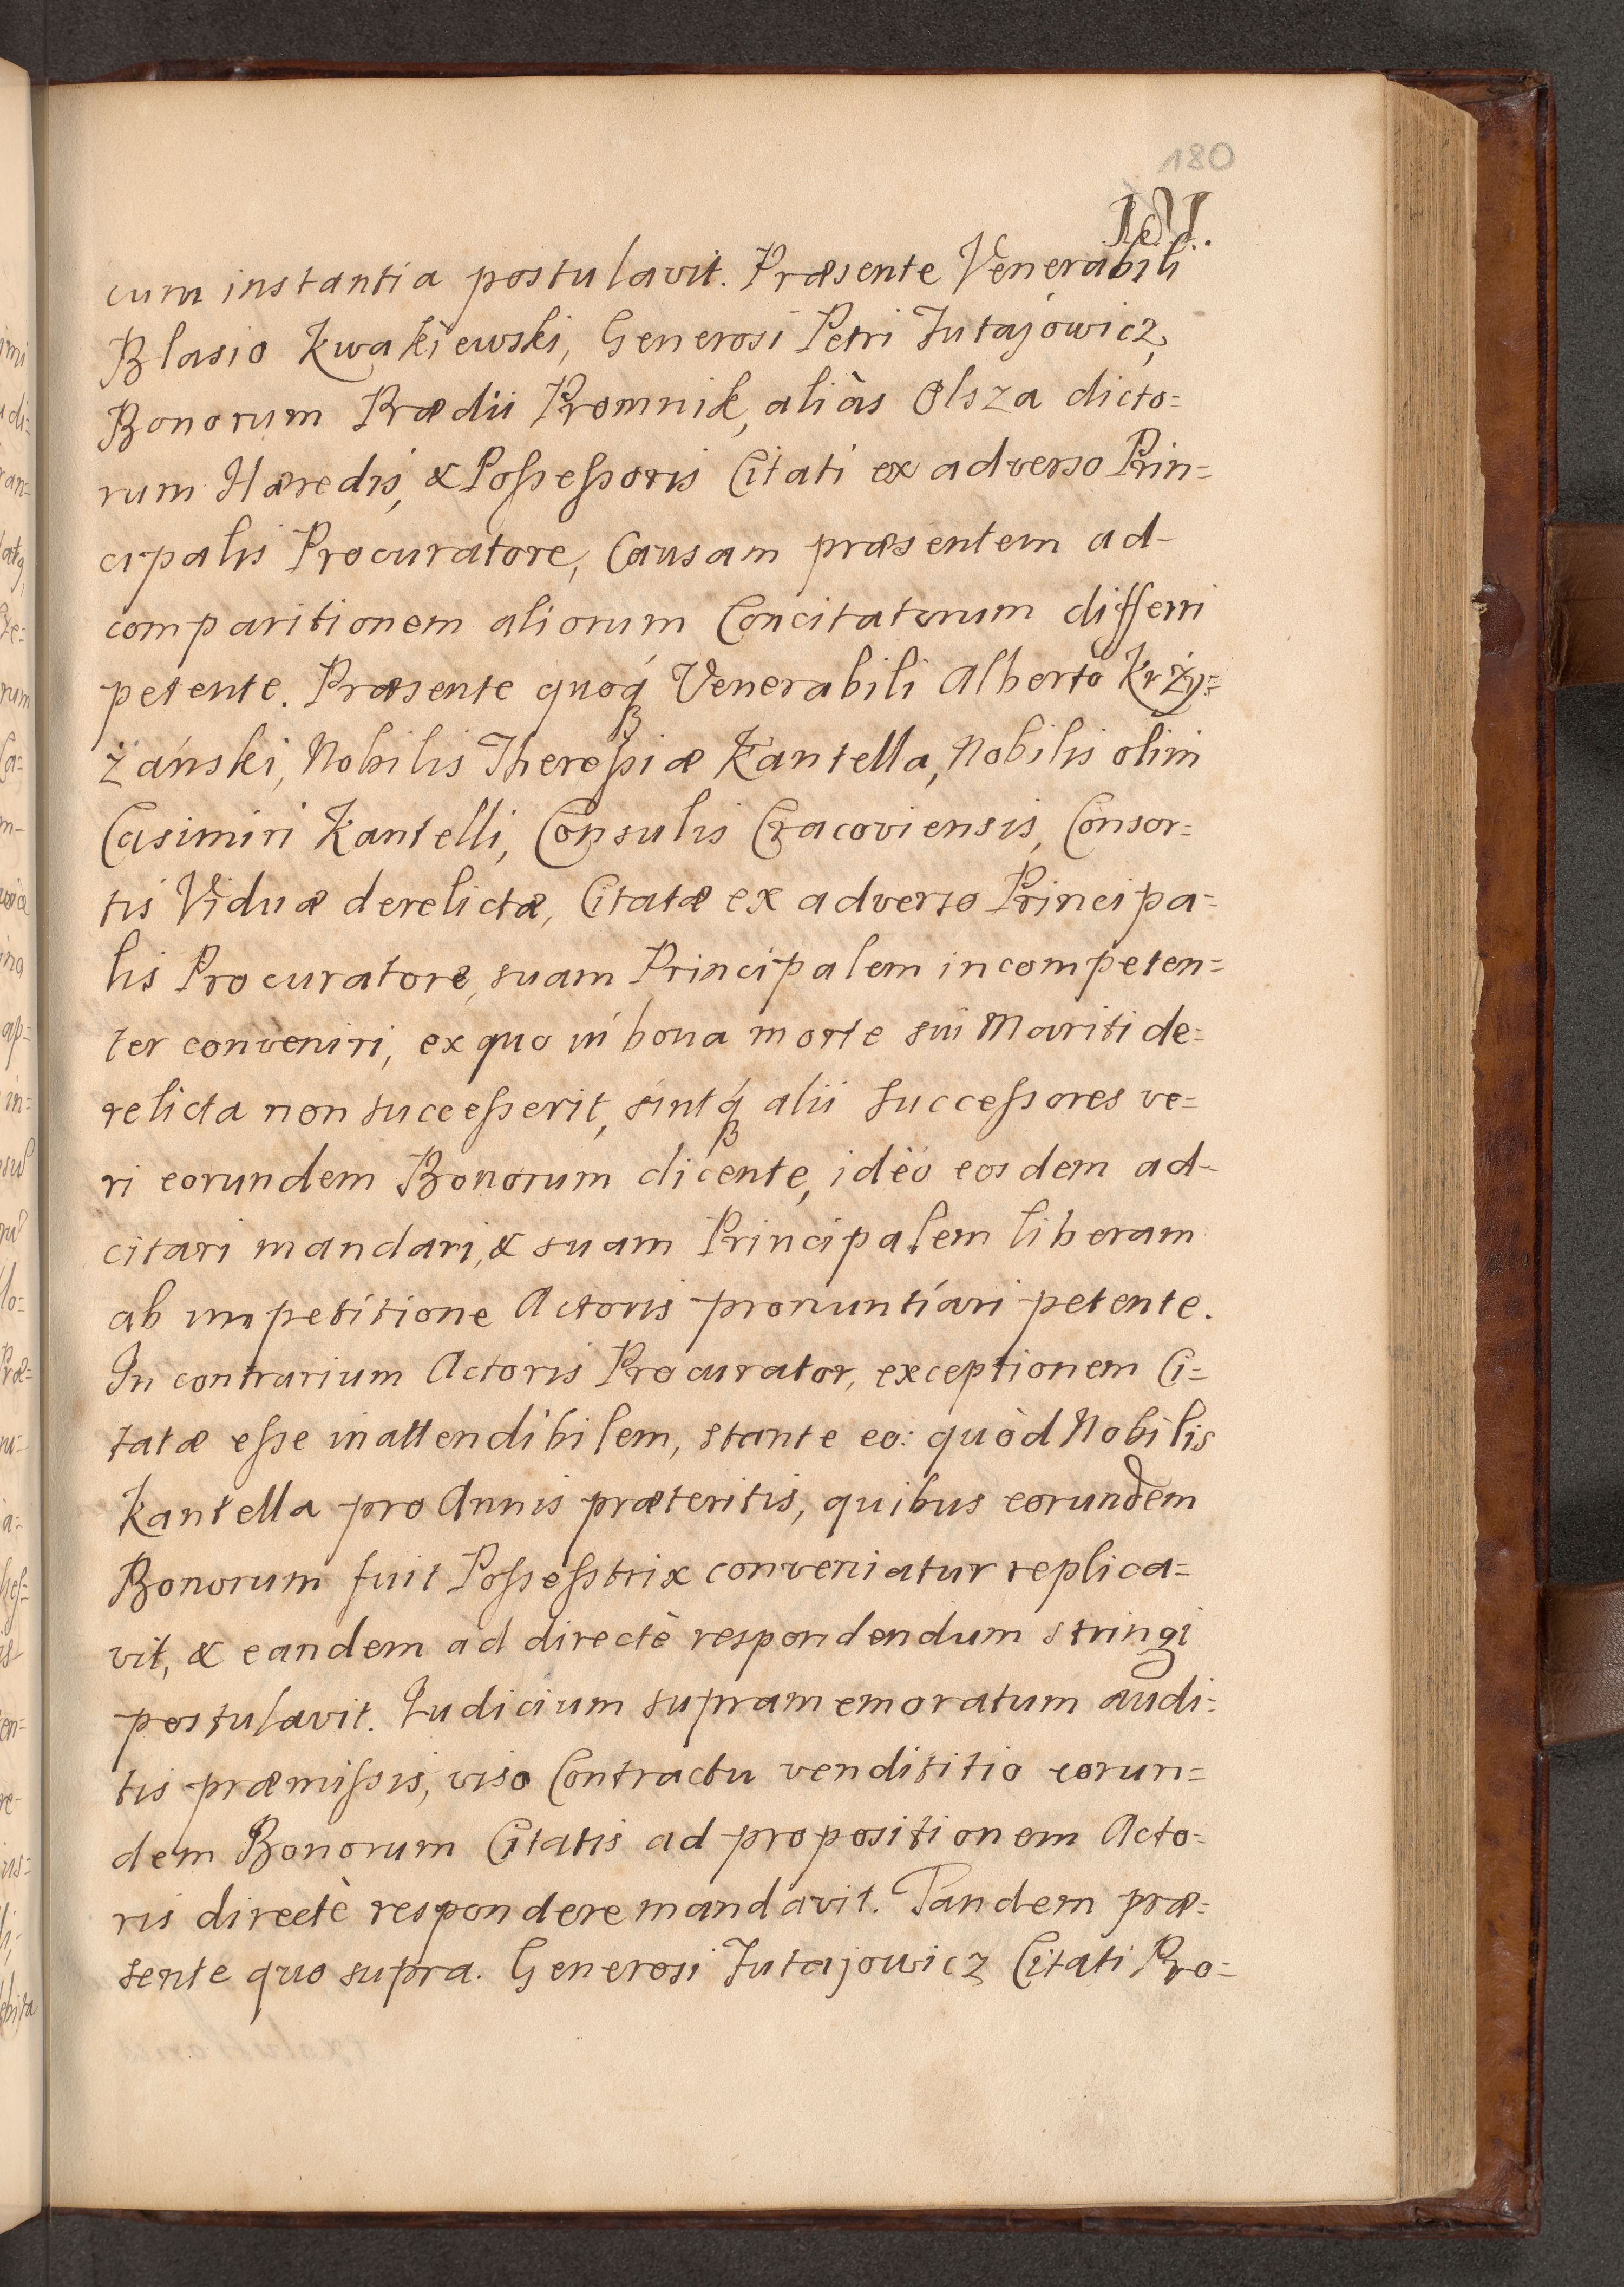 180
cum instantia postulavit. Præsente Venerabili
Blasio Kwakiewski, Generosi Petri Jutajowicz,
Bonorum Prædii Promnik, aliàs Olsza dicto=
rum Hæredis, & Poſseſsoris Citati ex adverso Prin=
cipalis Procuratore, Causam præsentem ad-
comparitionem aliorum Concitatorum differri
petente. Præsente quoq́ꝫ Venerabili Alberto Krży=
żański, Nobilis Thereſsiæ Kantella, Nobilis olim
Casimiri Kantelli, Consulis Cracoviensis, Consor=
tis Viduæ derelictæ, Citatæ ex adverso Principa=
lis Procuratore, suam Principalem incompeten=
ter conveniri, ex quo in bona morte sui Mariti de=
relicta non succeſserit, sintq́ꝫ alii Succeſsores ve=
ri eorundem Bonorum dicente, ideò eosdem ad-
citari mandari, & suam Principalem liberam
ab impetitione Actoris pronuntiari petente.
In contrarium Actoris Procurator, exceptionem Ci=
tatæ eſse inattendibilem, stante eo: quòd Nobilis
Kantella pro Annis præteritis, quibus eorundem
Bonorum fuit Poſseſstrix conveniatur replica=
vit, & eandem ad directè respondendum stringi
postulavit. Judicium supramemoratum audi=
tis præmiſsis, viso Contractu vendititio eorun=
dem Bonorum Citatis ad propositionem Acto=
ris directè respondere mandavit. Tandem præ=
sente quo supra. Generosi Jutajowicz Citati Pro=